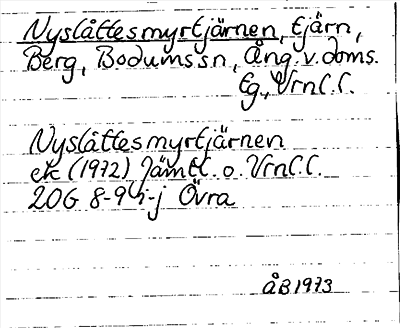 Nyslåttesmyrtjärnen, tjärn,
Berg, Bodums sn, Ång. v. doms.
tg., Vrnl.l.
Nyslåttesmyrtjärnen
ek (1972) Jämtl. o. Vrnl.l.
20G 8-9 i-j Övra
ÅB 1973